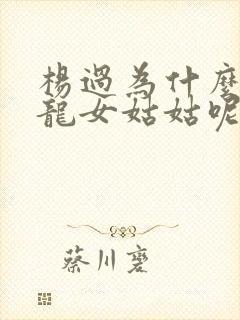 楊過為什麼
龍女姑姑呢
蔡川夔